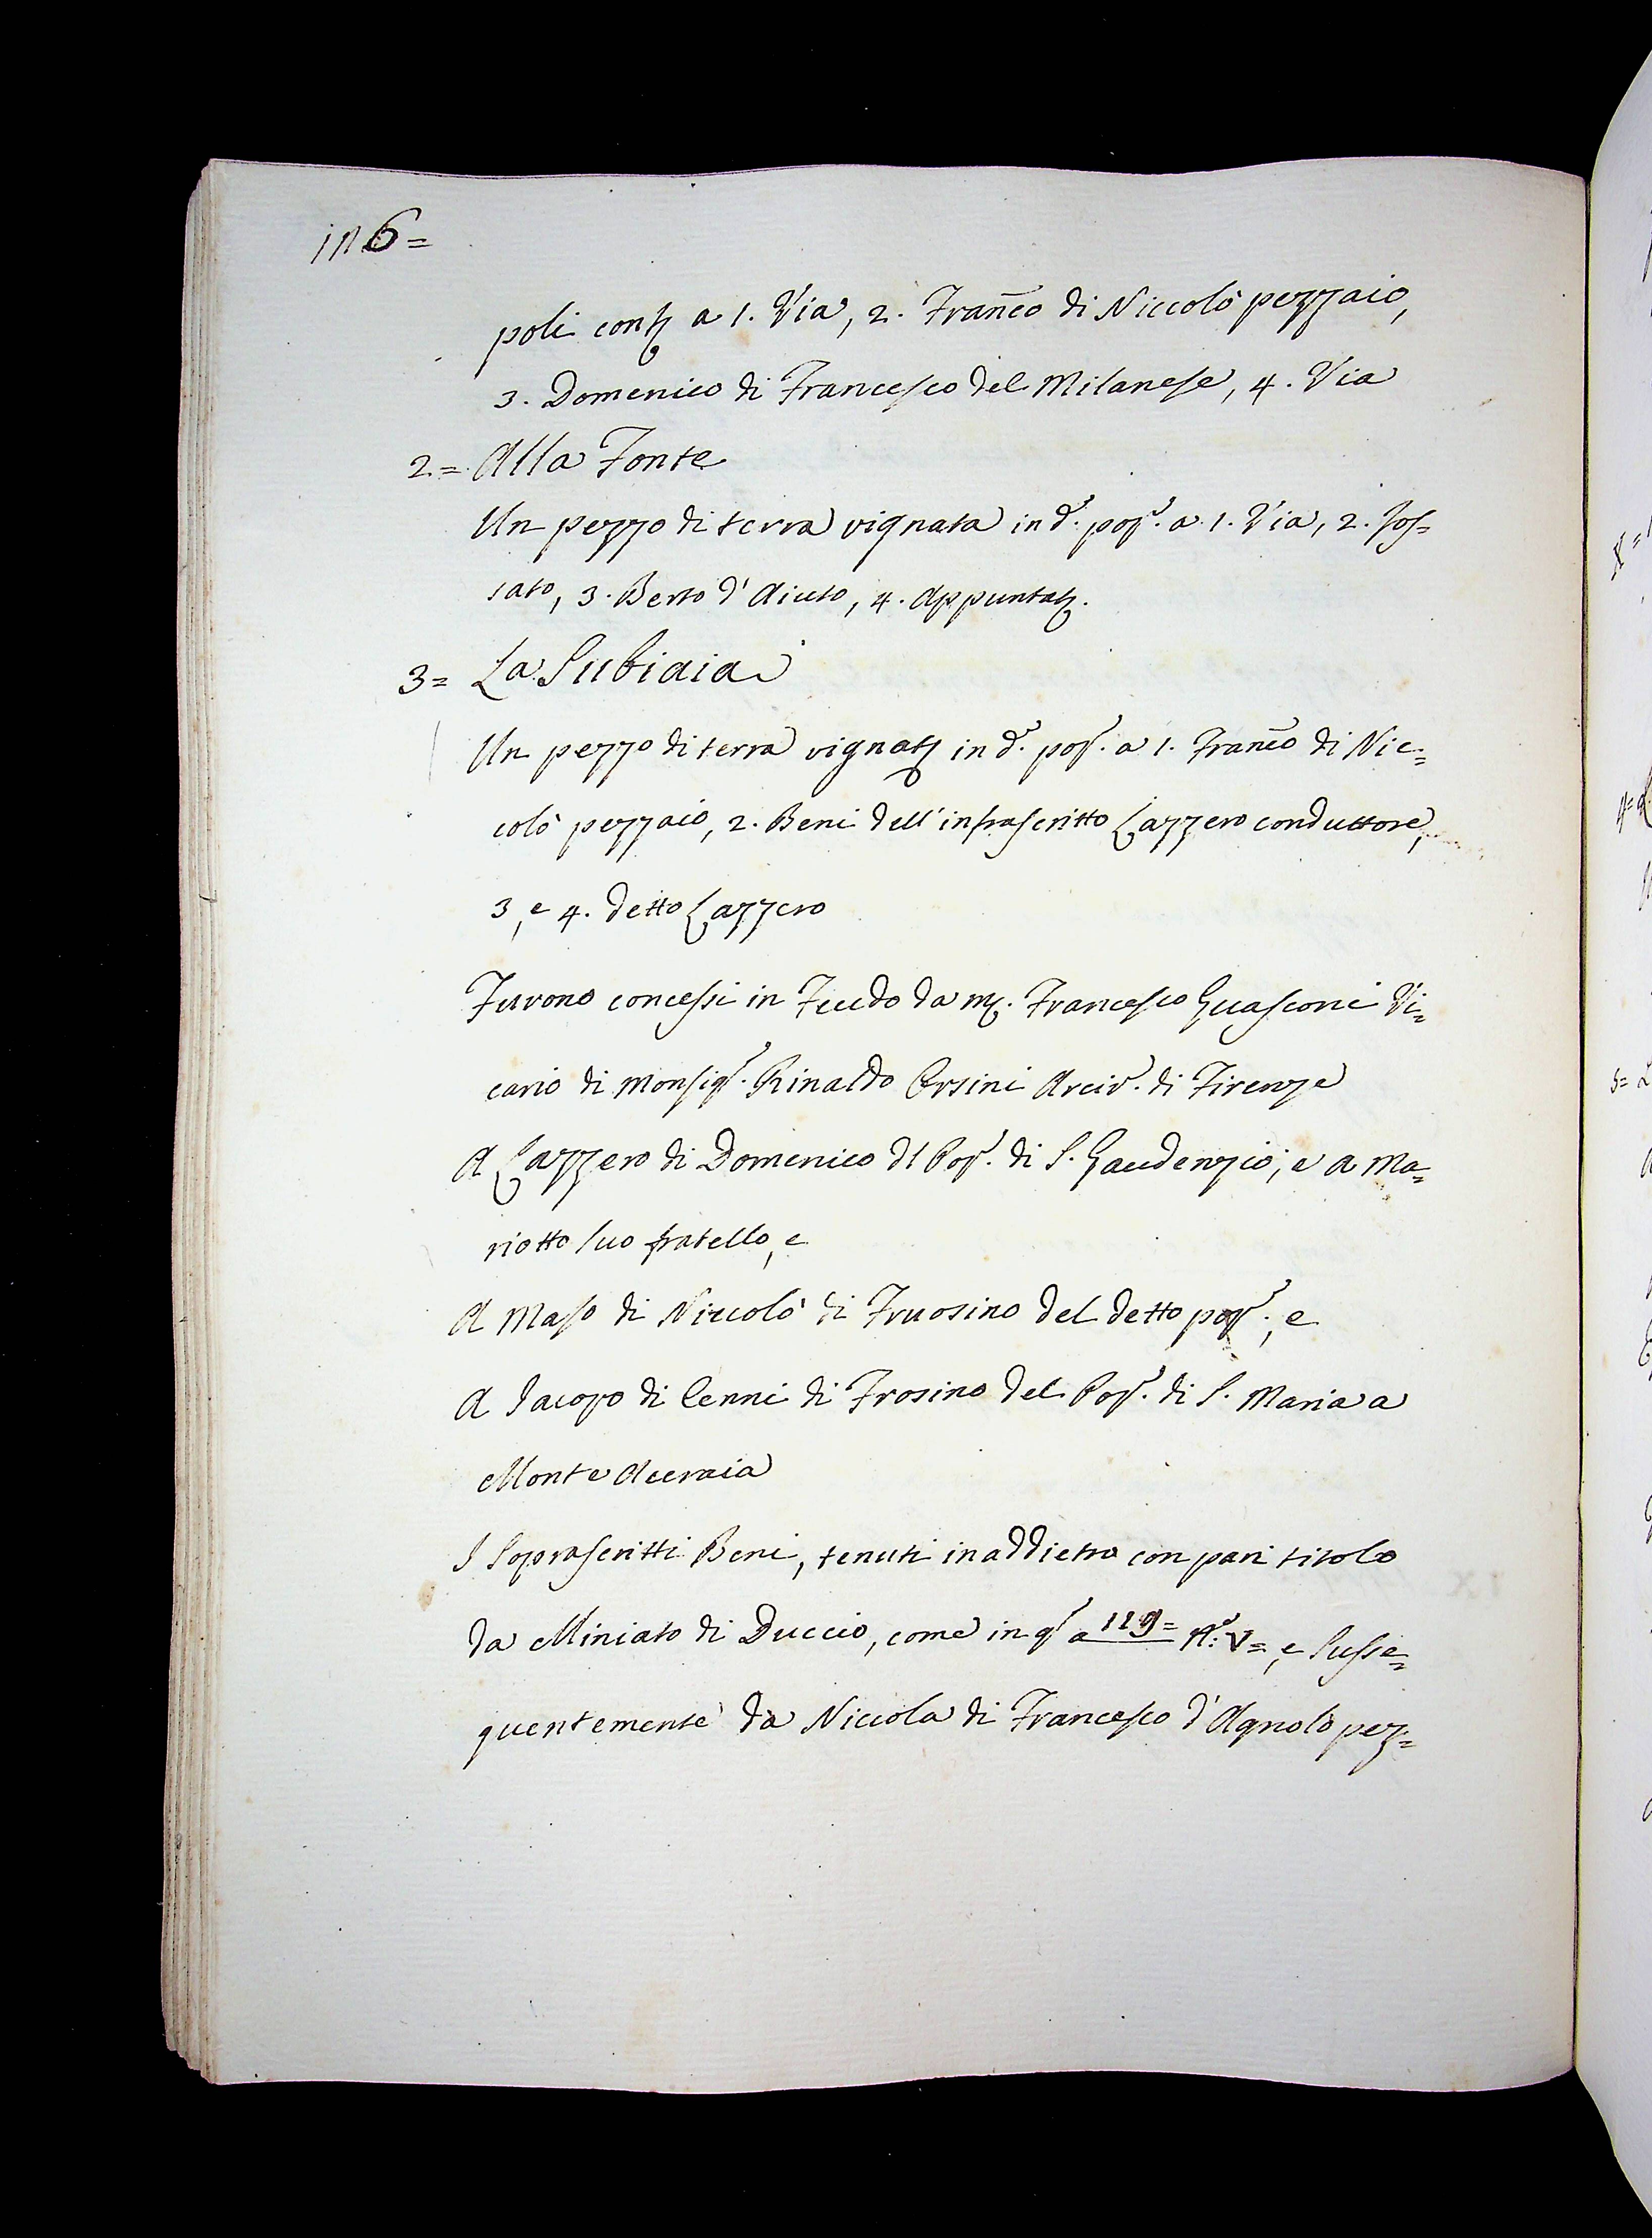 116=
poli conf. a 1. Via, 2. Franco di Niccolò pezzaio,
3. Domenico di Francesco del Milanese, 4. Via
2= Alla Fonte
Un pezzo di terra vignata in d.º pop.º a 1. Via, 2. fos=
sato, 3. Berto d'Aiuto, 4. Appuntat.
3= La Subiaia
Un pezzo di terra vignat. in d.º pop.º a 1. Franco di Nic=
colò pezzaio, 2. Beni dell'infrascritto Lazzero conduttore,
3, e 4. detto Lazzero
Furono concessi in Feudo da m. Francesco Guasconi Vi=
cario di Monsig.r Rinaldo Orsini Arciv.º di Firenze
A Lazzero di Domenico dl Pop.º di S. Gaudenzio, e a Ma=
riotto suo fratello, e
A Maso di Niccolò di Fruosino del detto pop.º, e
A Jacopo di Cenni di Frosino del Pop.º di S. Maria a
Monte Aceraia
I Soprascritti Beni, tenuti in addietro con pari titolo
da Miniato di Duccio, come in q.º a 119= N.º: V=, e susse=
quentemente da Niccola di Francesco d'Agnolo pez=